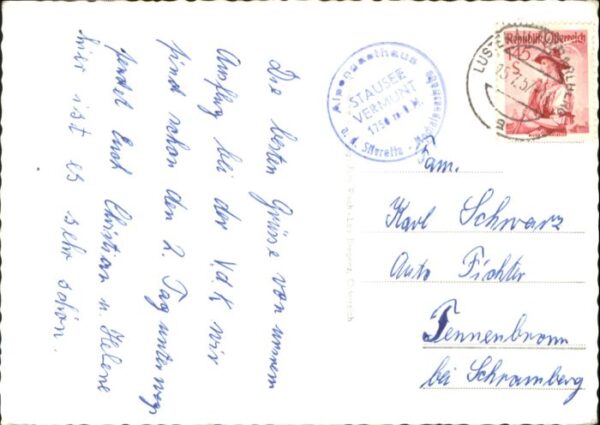 Die besten Grüsse von unserem
Ausflug bei der V.d.K wir
sind schon den 2. Tag unterwegs
sendet Euch Christian u. Helene
hier ist es sehr schön.
Alpengasthaus
STAUSEE
VERMUNT
1750 m ü. M.
a. d. Silvretta -
Republik Österreich
1.45
S
LUSTE
Fam.
Karl Schwarz
Auto Fichter
Tennenbronn
bei Schramberg